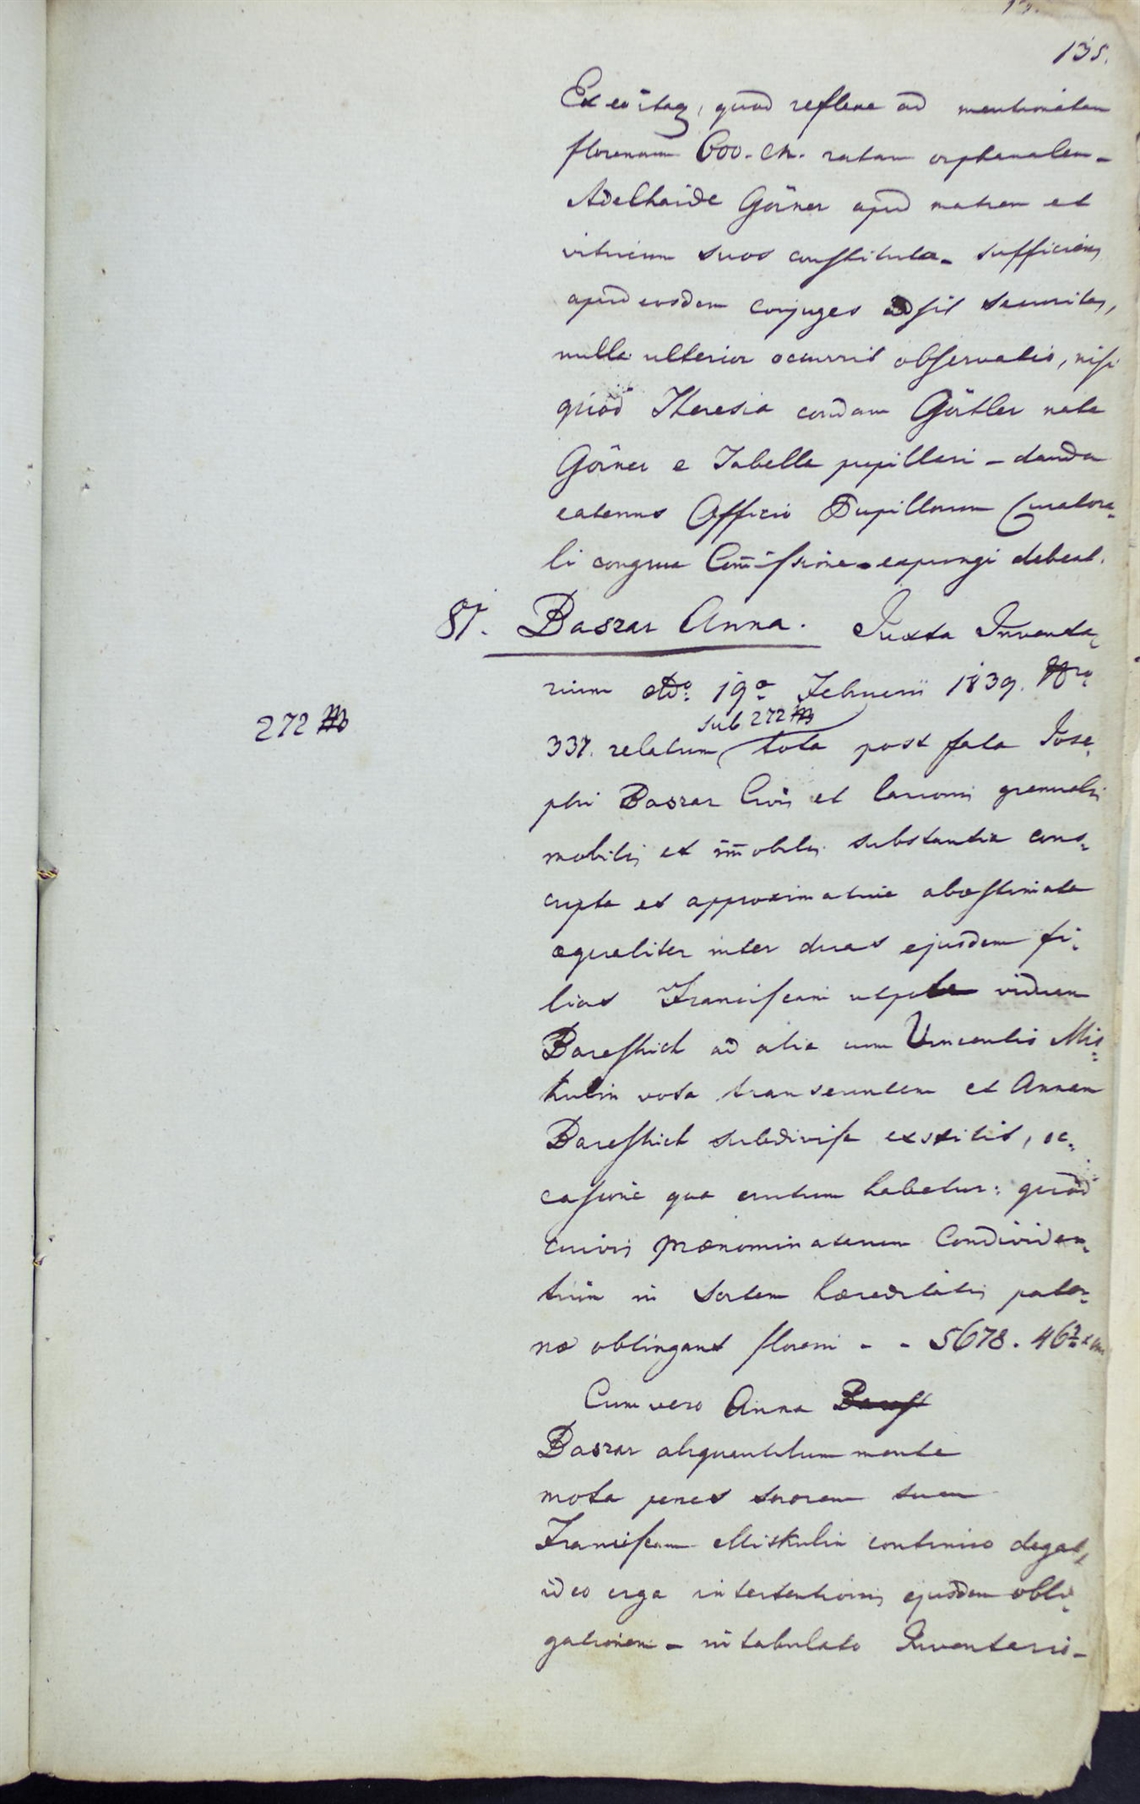 135.
Ex eo itaq, quod reflexe ad mentionatam
florenum 600. CM. ratam orphanalem –
Adelhaide Görner apud matrem et
vitricum suos constituta – sufficiens
apud eosdem conjuges adsit securitas,
nulla ulterior occurrit observatio, nisi
quod Theresia condam Görtler nata
Görner e Tabella pupillari – danda
eatenus Officio Pupillorum Curatora-
li congrua Com̄issione – expungi debeat.
87. Baszar Anna. Juxta Inventa-
rium ddo 19a Februarii 1839. Nro
sub 272 
272
337. relatum tota post fata Jose-
phi Baszar Civis et gremialis
mobilis et im̄obilis substantia cons-
cripta et approximative abaestimata
aequaliter inter duas ejusdem fi-
lias Franciscam utpote viduam
Bareshich ad alia cum Vincentio Mis-
kulin vota transeuntem et Annam
Bareshich subdivisa exstitit, oc-
casione qua erutum habetur: quod
cuivis praenominatarum Condividen-
tium in sortem haereditatis pater-
nae obtingant floreni – – 5678. 46
Cum vero Anna Baresh
Baszar aliquantulum mente
mota penes sororem suam
Franciscam Miskulin continuo degat,
ideo erga intertentionis ejusdem obli-
gationem – intabulato Inventario –